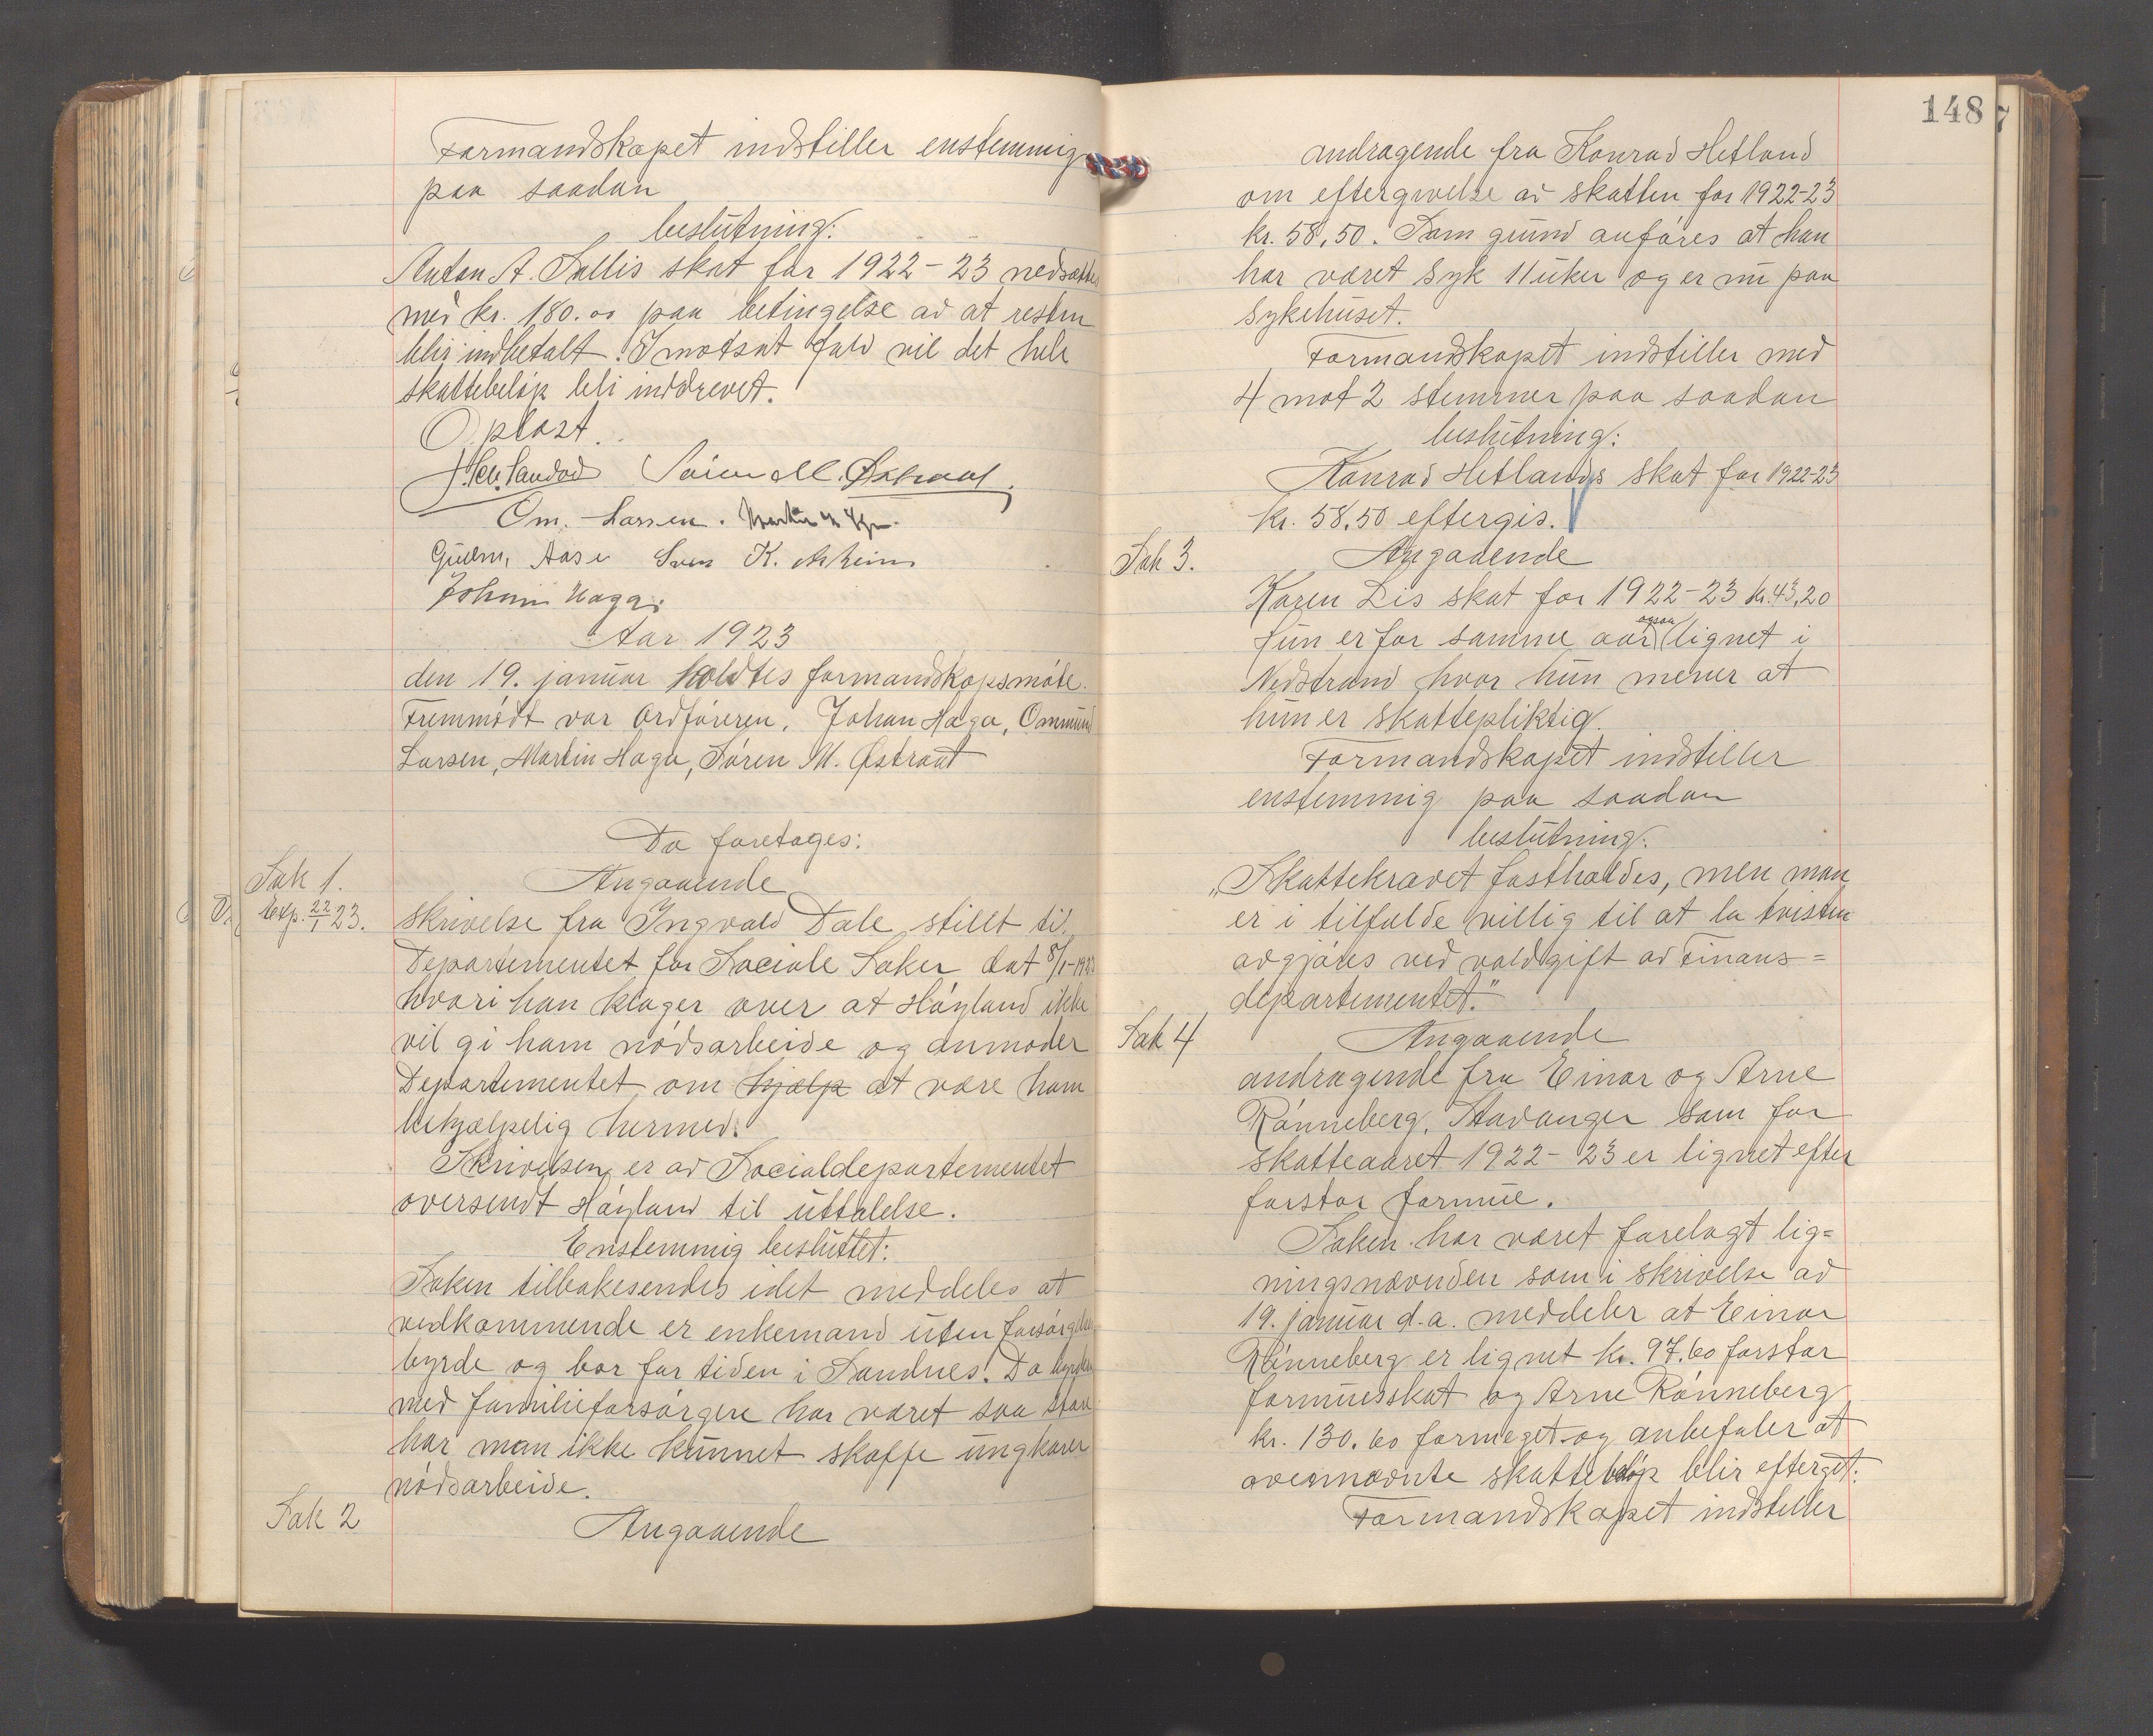 Formandskapet indstiller enstemmig
paa saadan
beslutning:
Anton A. Sallis skat for 1922-23 nedsættes
med kr. 180.00 paa betingelse av at resten
blir indbetalt. I motsat fald vil det hele
skattebeløp bli inddrevet.
Oplæst.
Søren M. Østraat.
Om. Larsen.
Gudm. Aase Sven K. Asheim
Johan Haga.
Aar 1923
den 19. januar holdtes formandskapsmøte.
Fremmødt var Ordføreren, Johan Haga, Ommund
Larsen, Martin Haga, Søren M. Østraat
Da foretages:
Sak 1.
Exp. 22/1 23.
Angaaende
skrivelse fra Ingvald Dale stillt til
Departementet for Sociale Saker dat 8/1-1923
hvori han klager over at Høyland ikke
vil gi ham nødsarbeide og anmoder
Departementet om hjælp at være ham
behjælpelig hermed.
Skrivelsen er av Socialdepartementet
oversendt Høyland til uttalelse.
Enstemmig besluttet:
Saken tilbakesendes idet meddeles at
vedkommende er enkemand uten forsørgelses
byrde og bor for tiden i Sandnes. Da
med familieforsørgere har været saa store
har man ikke kunnet skaffe ungkarer
nødsarbeide.
Sak 2
Angaaende
148
andragende fra Konrad Hetland
om eftergivelse av skatten for 1922-23
kr. 58,50. Som grund anføres at han
har været syk 11 uker og er nu paa
sykehuset.
Formandskapet indstiller med
4 mot 2 stemmer paa saadan
beslutning:
Konrad Hetlands skat for 1922-23
kr. 58,50 eftergis.
Sak 3.
Angaaende
Karen Lis skat for 1922-23 kr. 43,20
Hun er for samme aar ogsaa lignet i
Nedstrand hvor hun mener at
hun er skattepliktig.
Formandskapet indstiller
enstemmig paa saadan
beslutning:
„Skattekravet fastholdes, men man
er i tilfælde villig til at la tvisten
avgjøres ved voldgift av Finans=
departementet."
Sak 4
Angaaende
andragende fra Einar og Arne
Rønneberg, Stavanger som for
skatteaaret 1922-23 er lignet efter
forstor formue.
Saken har været forelagt lig=
ningsnævnden som i skrivelse av
19. januar d.a. meddeler at Einar
Rønneberg er lignet kr. 97.60 forstor
formuesskat og Arne Rønneberg
kr. 130.60 formeget og anbefaler at
ovennævnte skattebeløp blir eftergit.
Formandskapet indstiller